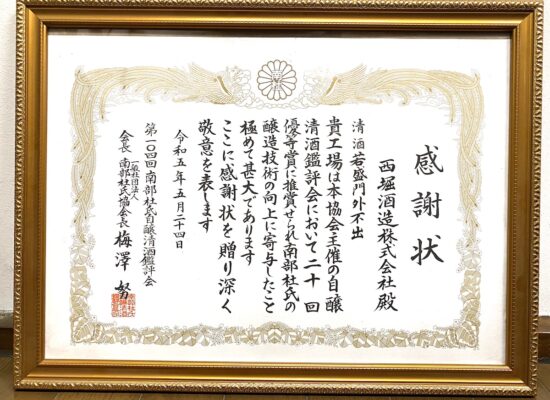 感謝状
西堀酒造株式会社殿
清酒若盛門外不出
貴工場は本協会主催の自醸
清酒鑑評会において二十回
優等賞に推賞せられ南部杜氏の
醸造技術の向上に寄与したこと
極めて甚大であります
ここに感謝状を贈り深く
敬意を表します
令和五年五月二十四日
第一〇四回南部杜氏自醸清酒鑑評会
一般社団法人
会長 南部杜氏協会長 梅澤 努